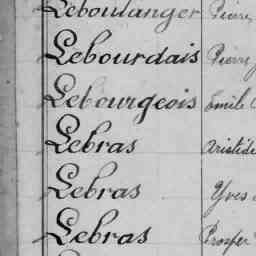 Leboulanger Pierre
Lebourdais Pierre
Lebourgeois Emile
Lebras Aristide
Lebras Yves
Lebras Prosper